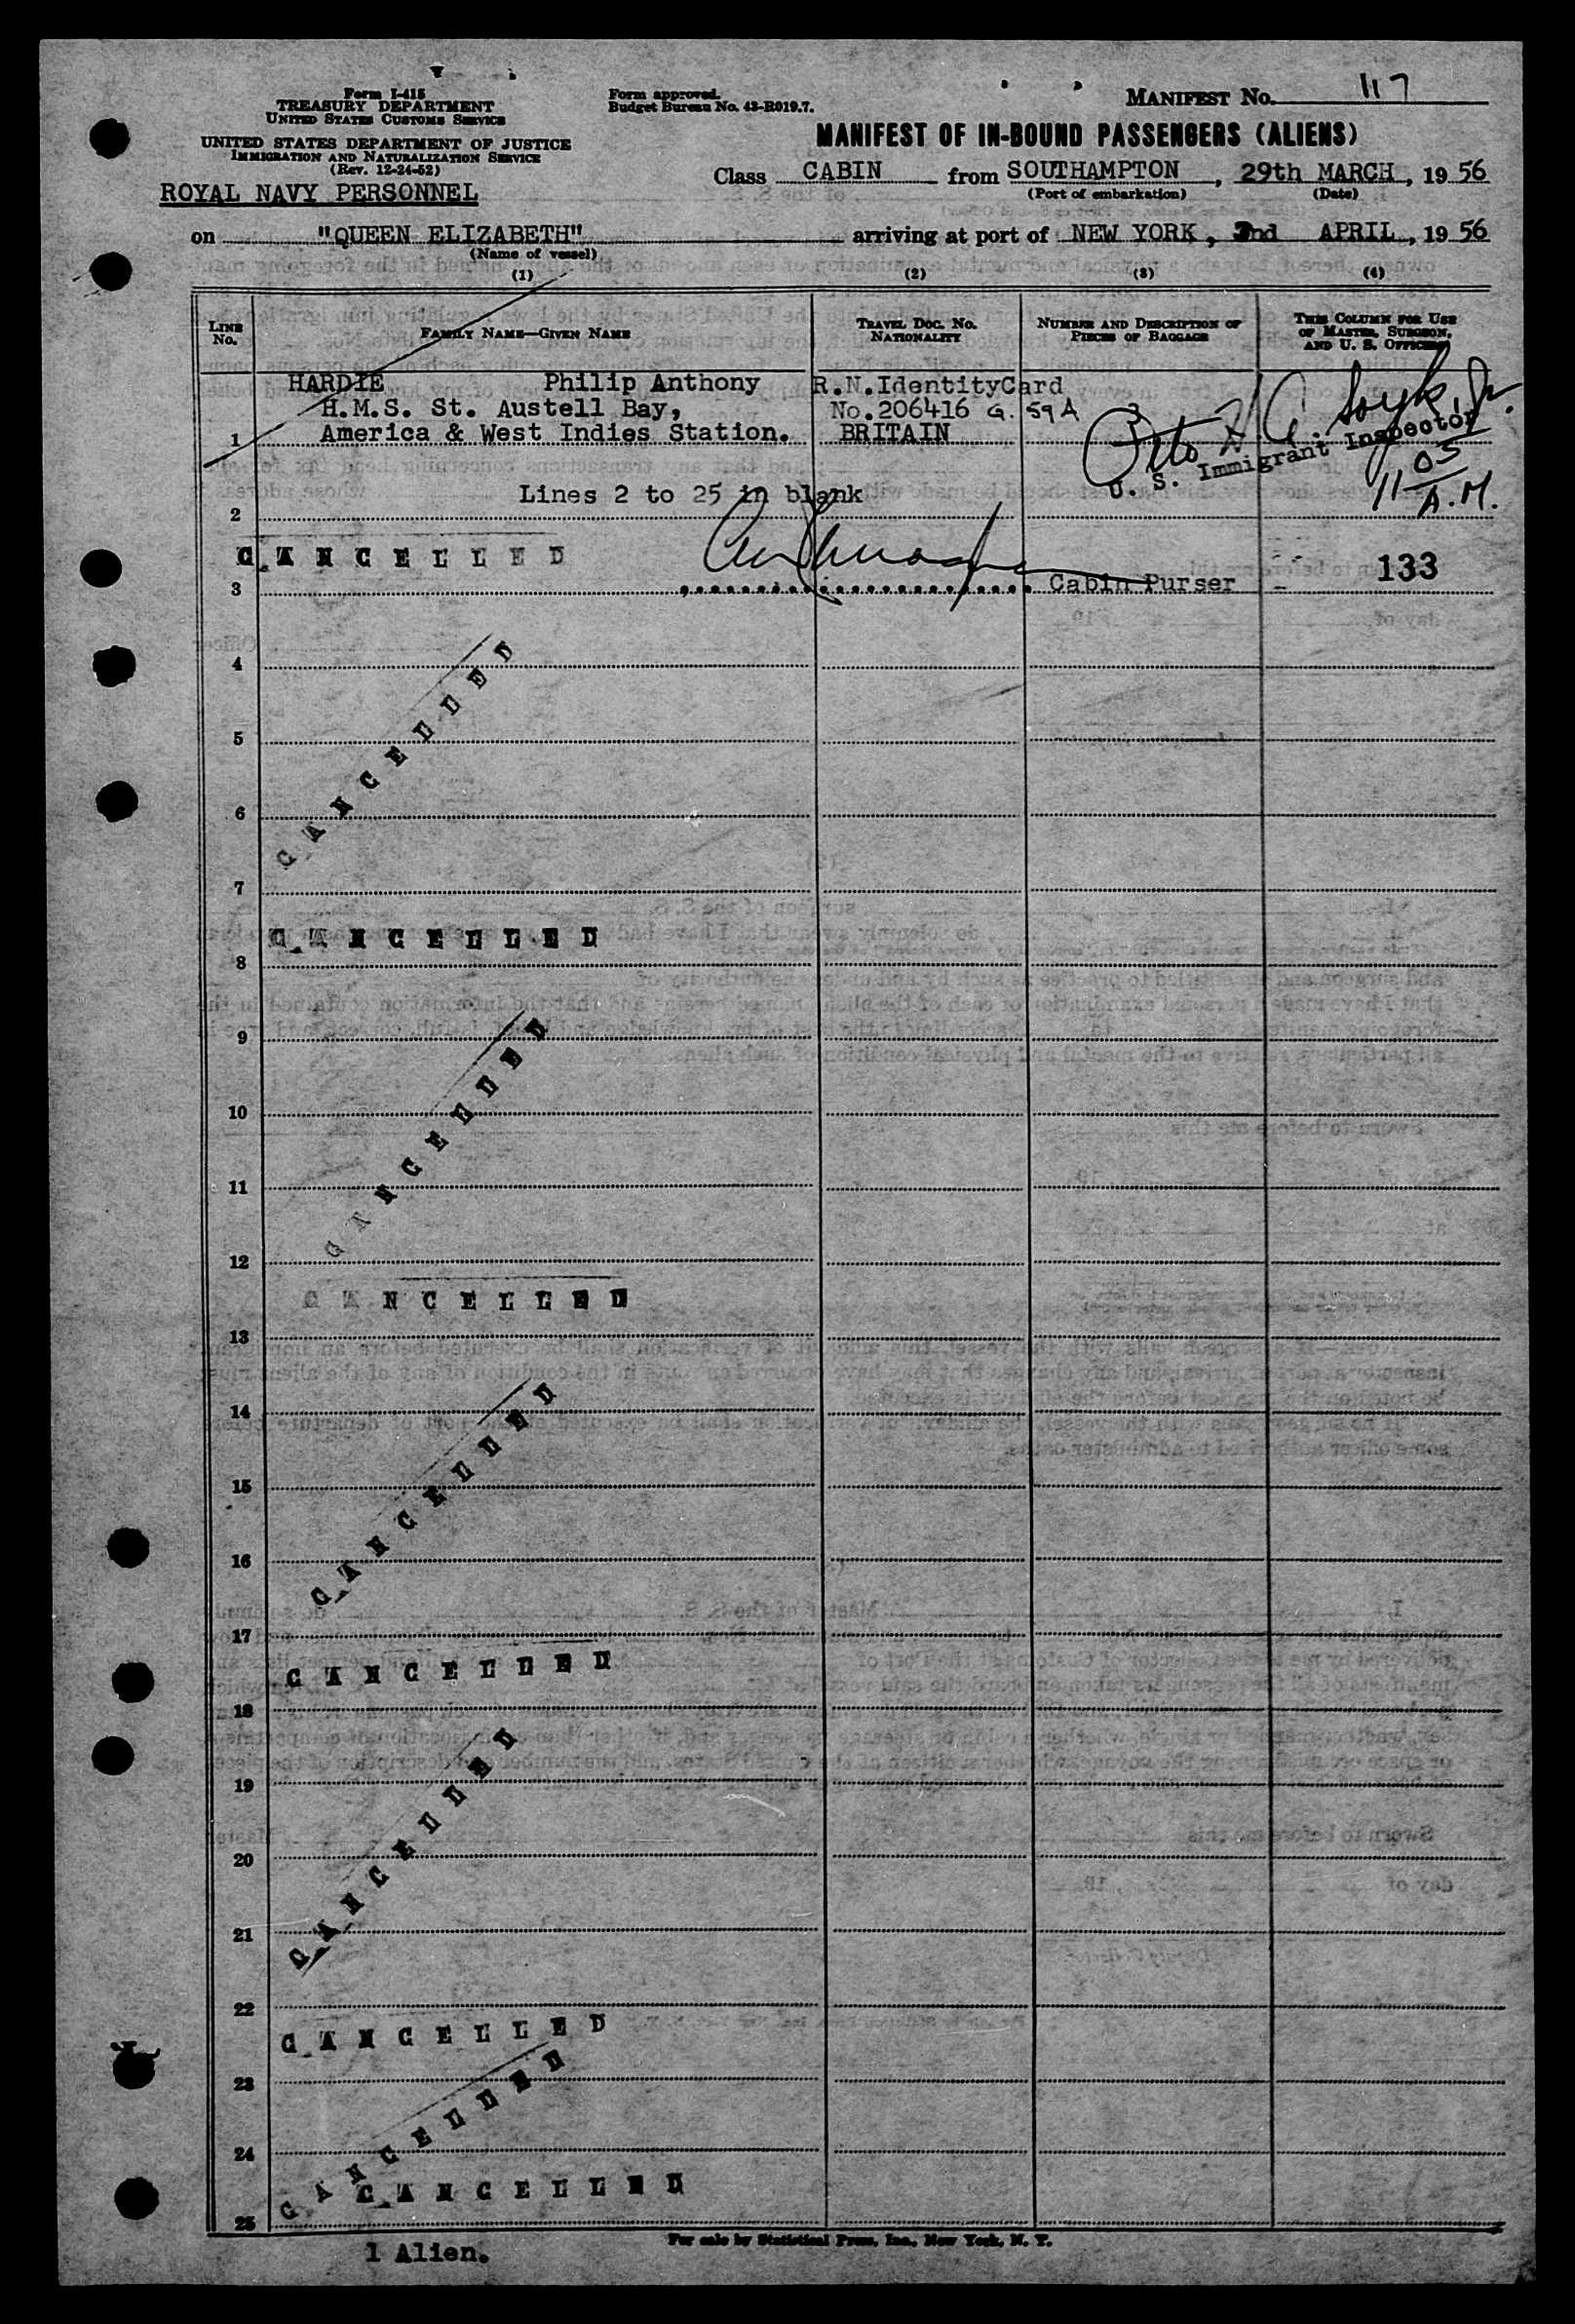 Form I-415
TREASURY DEPARTMENT
UNITED STATES CUSTOMS SERVICE
UNITED STATES DEPARTMENT OF JUSTICE
IMMIGRATION AND NATURALIZATION SERVICE
(Rev. 12-24-52)
ROYAL NAVY PERSONNEL
Form approved.
Budget Bureau No. 43-R019.7.
MANIFEST NO. 117
MANIFEST OF IN-BOUND PASSENGERS (ALIENS)
Class CABIN from SOUTHAMPTON, 29th MARCH, 1956
(Port of embarkation) (Date)
on "QUEEN ELIZABETH" arriving at port of NEW YORK, 2nd APRIL, 1956
(Name of vessel)
(1) (2) (3) (4)
LINE No. FAMILY NAME—GIVEN NAME TRAVEL DOC. NO. NATIONALITY NUMBER AND DESCRIPTION OF PIECES OF BAGGAGE THIS COLUMN FOR USE OF MASTER, SURGEON, AND U. S. OFFICERS
HARDIE Philip Anthony R.N.IdentityCard
H.M.S. St. Austell Bay, No.206416 G.59A
1 America & West Indies Station. BRITAIN
U. S. Immigrant Inspector
11 05 A.M.
Lines 2 to 25 in blank
2
CANCELLED
133
3 Cabin Purser -
4
CANCELLED
5
6
7
CANCELLED
8
9
CANCELLED
10
11
12
CANCELLED
13
14
CANCELLED
15
16
17
CANCELLED
18
19
CANCELLED
20
21
22
CANCELLED
23
CANCELLED
24
CANCELLED
25
1 Alien.
For sale by Statistical Press, Inc., New York, N. Y.